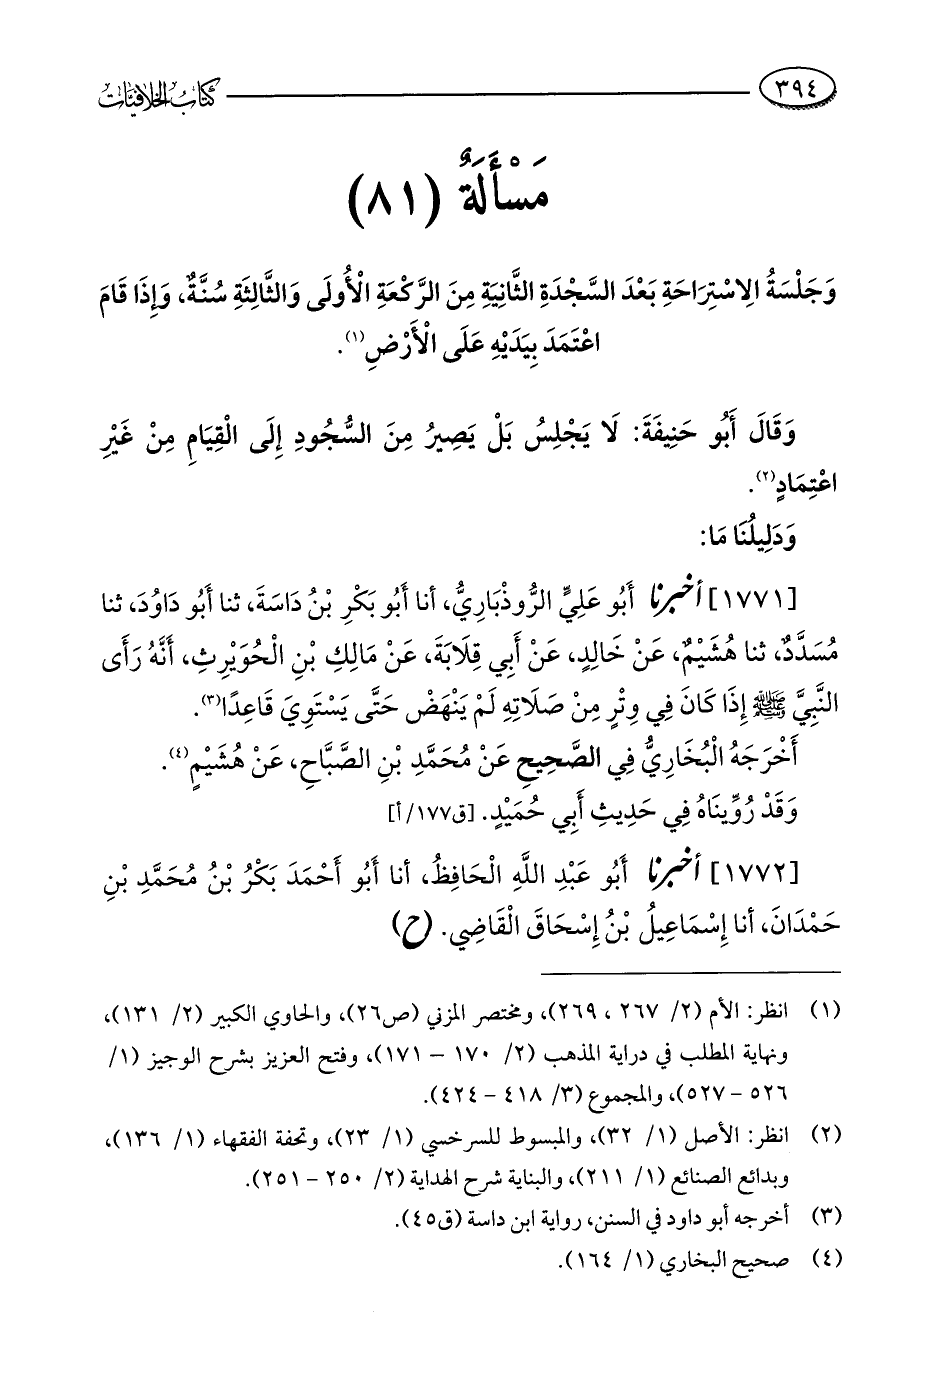 ٣٩٤ كتاب الخلافيات
مَسْأَلَةٌ (٨١)
وَجَلْسَةُ الِاسْتِرَاحَةِ بَعْدَ السَّجْدَةِ الثَّانِيَةِ مِنَ الرَّكْعَةِ الْأُولَى وَالثَّالِثَةِ سُنَّةٌ، وَإِذَا قَامَ
اعْتَمَدَ بِيَدَيْهِ عَلَى الْأَرْضِ(١).
وَقَالَ أَبُو حَنِيفَةَ: لَا يَجْلِسُ بَلْ يَصِيرُ مِنَ السُّجُودِ إِلَى الْقِيَامِ مِنْ غَيْرِ
اعْتِمَادٍ(٢).
وَدَلِيلُنَا مَا:
[١٧٧١] أخبرنا أَبُو عَلِيٍّ الرُّوذْبَارِيُّ، أنا أَبُو بَكْرِ بْنُ دَاسَةَ، ثنا أَبُو دَاوُدَ، ثنا
مُسَدَّدٌ، ثنا هُشَيْمٌ، عَنْ خَالِدٍ، عَنْ أَبِي قِلَابَةَ، عَنْ مَالِكِ بْنِ الْحُوَيْرِثِ، أَنَّهُ رَأَى
النَّبِيَّ ﷺ إِذَا كَانَ فِي وِتْرٍ مِنْ صَلَاتِهِ لَمْ يَنْهَضْ حَتَّى يَسْتَوِيَ قَاعِدًا(٣).
أَخْرَجَهُ الْبُخَارِيُّ فِي الصَّحِيحِ عَنْ مُحَمَّدِ بْنِ الصَّبَّاحِ، عَنْ هُشَيْمٍ(٤).
وَقَدْ رُوِّينَاهُ فِي حَدِيثِ أَبِي حُمَيْدٍ. [ق١٧٧/أ]
[١٧٧٢] أخبرنا أَبُو عَبْدِ اللَّهِ الْحَافِظُ، أنا أَبُو أَحْمَدَ بَكْرُ بْنُ مُحَمَّدِ بْنِ
حَمْدَانَ، أنا إِسْمَاعِيلُ بْنُ إِسْحَاقَ الْقَاضِي. (ح)
(١) انظر: الأم (٢/ ٢٦٧ ، ٢٦٩)، ومختصر المزني (ص٢٦)، والحاوي الكبير (٢/ ١٣١)،
ونهاية المطلب في دراية المذهب (٢/ ١٧٠ - ١٧١)، وفتح العزيز بشرح الوجيز (١/
٥٢٦ - ٥٢٧)، والمجموع (٣/ ٤١٨ - ٤٢٤).
(٢) انظر: الأصل (١/ ٣٢)، والمبسوط للسرخسي (١/ ٢٣)، وتحفة الفقهاء (١/ ١٣٦)،
وبدائع الصنائع (١/ ٢١١)، والبناية شرح الهداية (٢/ ٢٥٠ - ٢٥١).
(٣) أخرجه أبو داود في السنن، رواية ابن داسة (ق٤٥).
(٤) صحيح البخاري (١/ ١٦٤).